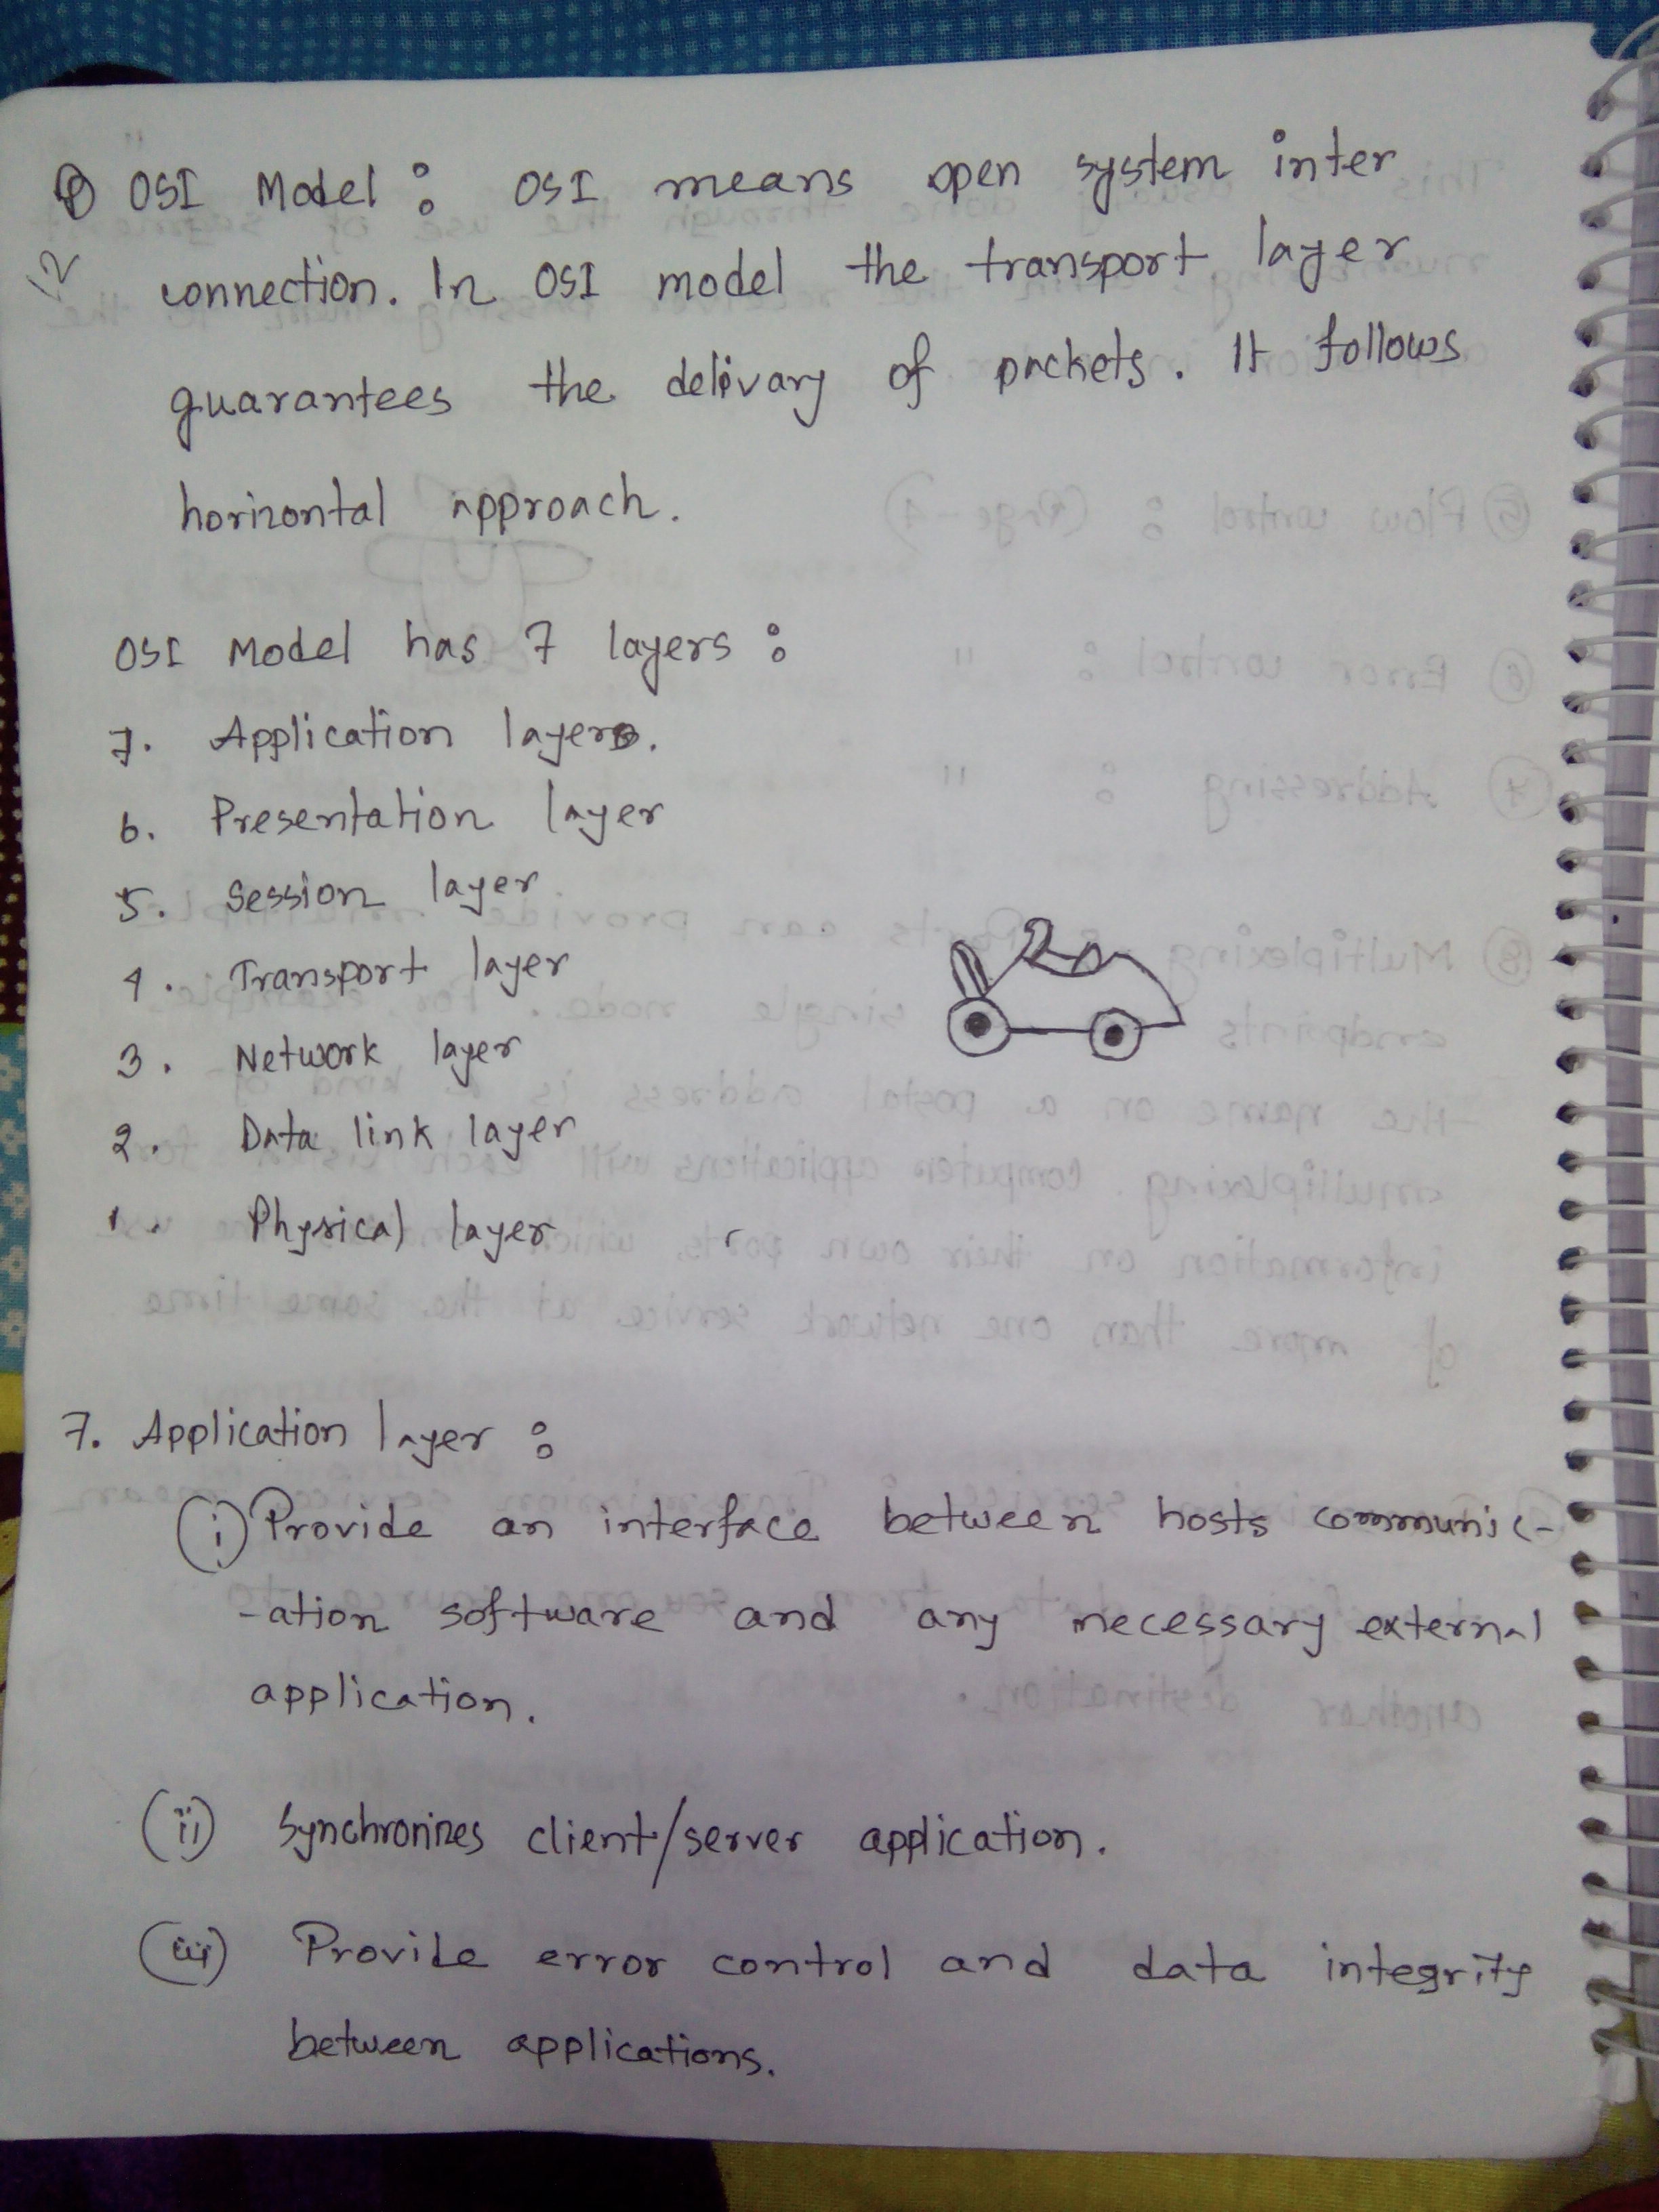 OSI Model : OSI means open system inter
12
connection. In OSI model the transport layer
guarantees the delivary of packets. It follows
horizontal approach.
OSI Model has 7 layers :
7. Application layer.
6. Presentation layer
5. Session layer
4. Transport layer
3. Network layer
2. Data link layer
1. Physical layer
7. Application layer :
(i) Provide an interface between hosts communic-
-ation software and any necessary external
application.
(ii) Synchronizes client/server application.
(iii) Provide error control and data integrity
between applications.